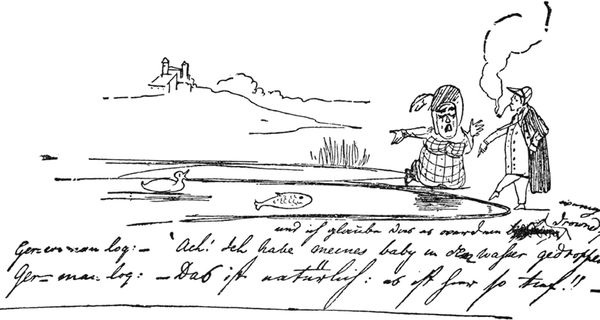 !
und ich glaube Das es werden drowned
Ger=wo=man log:– 'Ach! Ich habe meines baby in dem wasser gedroppe
Ger=man log:– Das ist natürlich: es ist hier so tief!! –